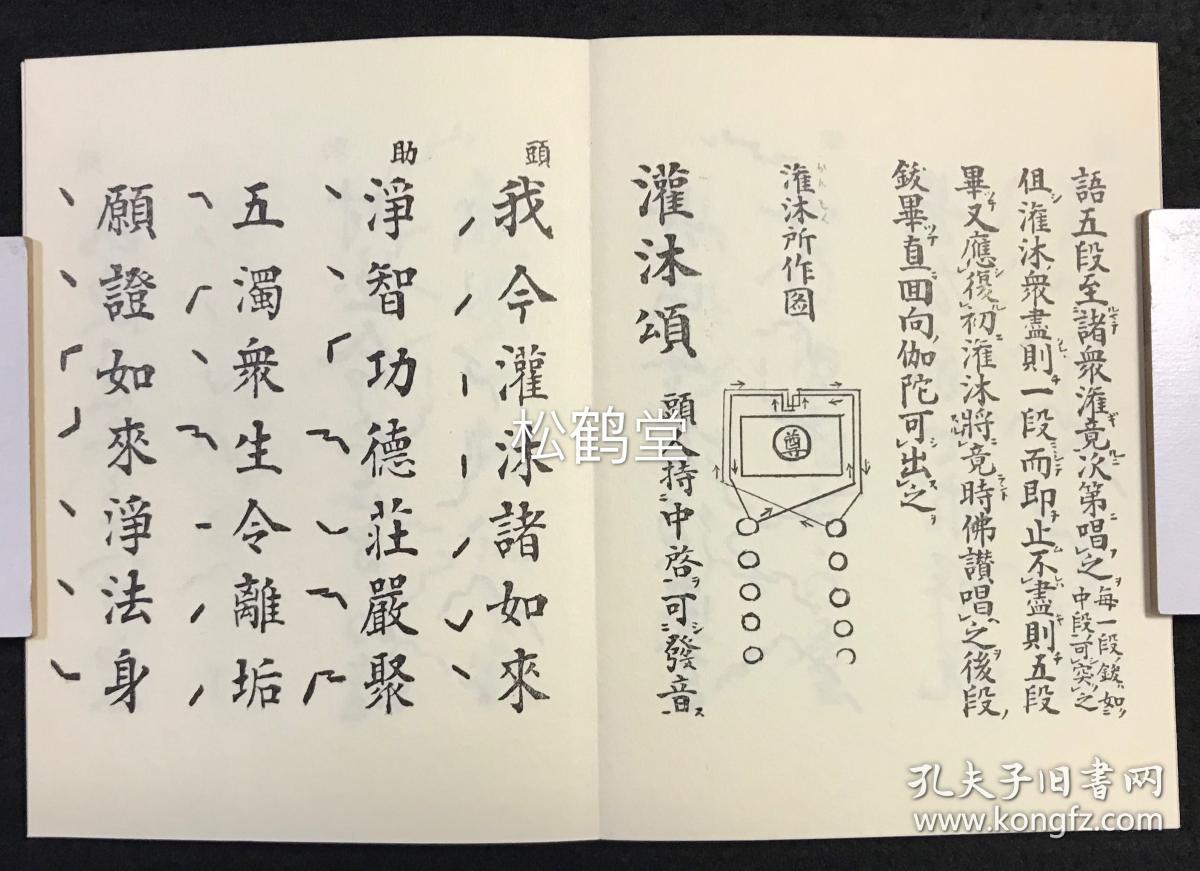 語五段至諸衆灌竟次第唱之每一段鈸如中段可突之
但灌沐衆盡則一段而即止不盡則五段
畢又應復初灌沐將竟時佛讃唱之後段
鈸畢直回向伽陀可出之
灌沐所作図
尊
灌沐頌 頭人持中啓可發音
頭 我今灌沐諸如來
助 淨智功德莊嚴聚
五濁衆生令離垢
願證如來淨法身
松鹤堂
孔夫子旧书网
www.kongfz.com